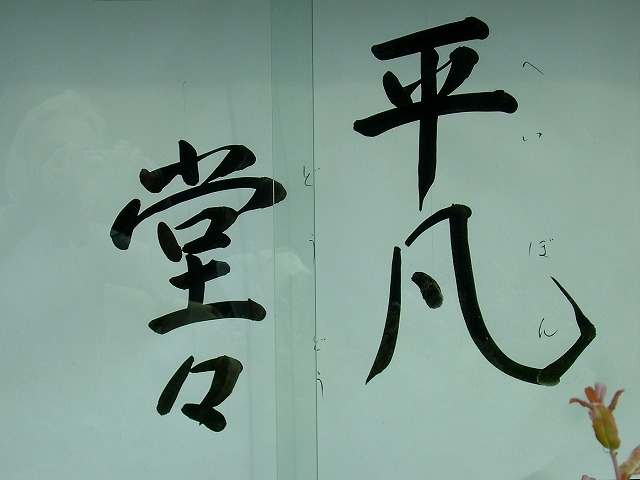 平凡
へいぼん
堂々
どうどう